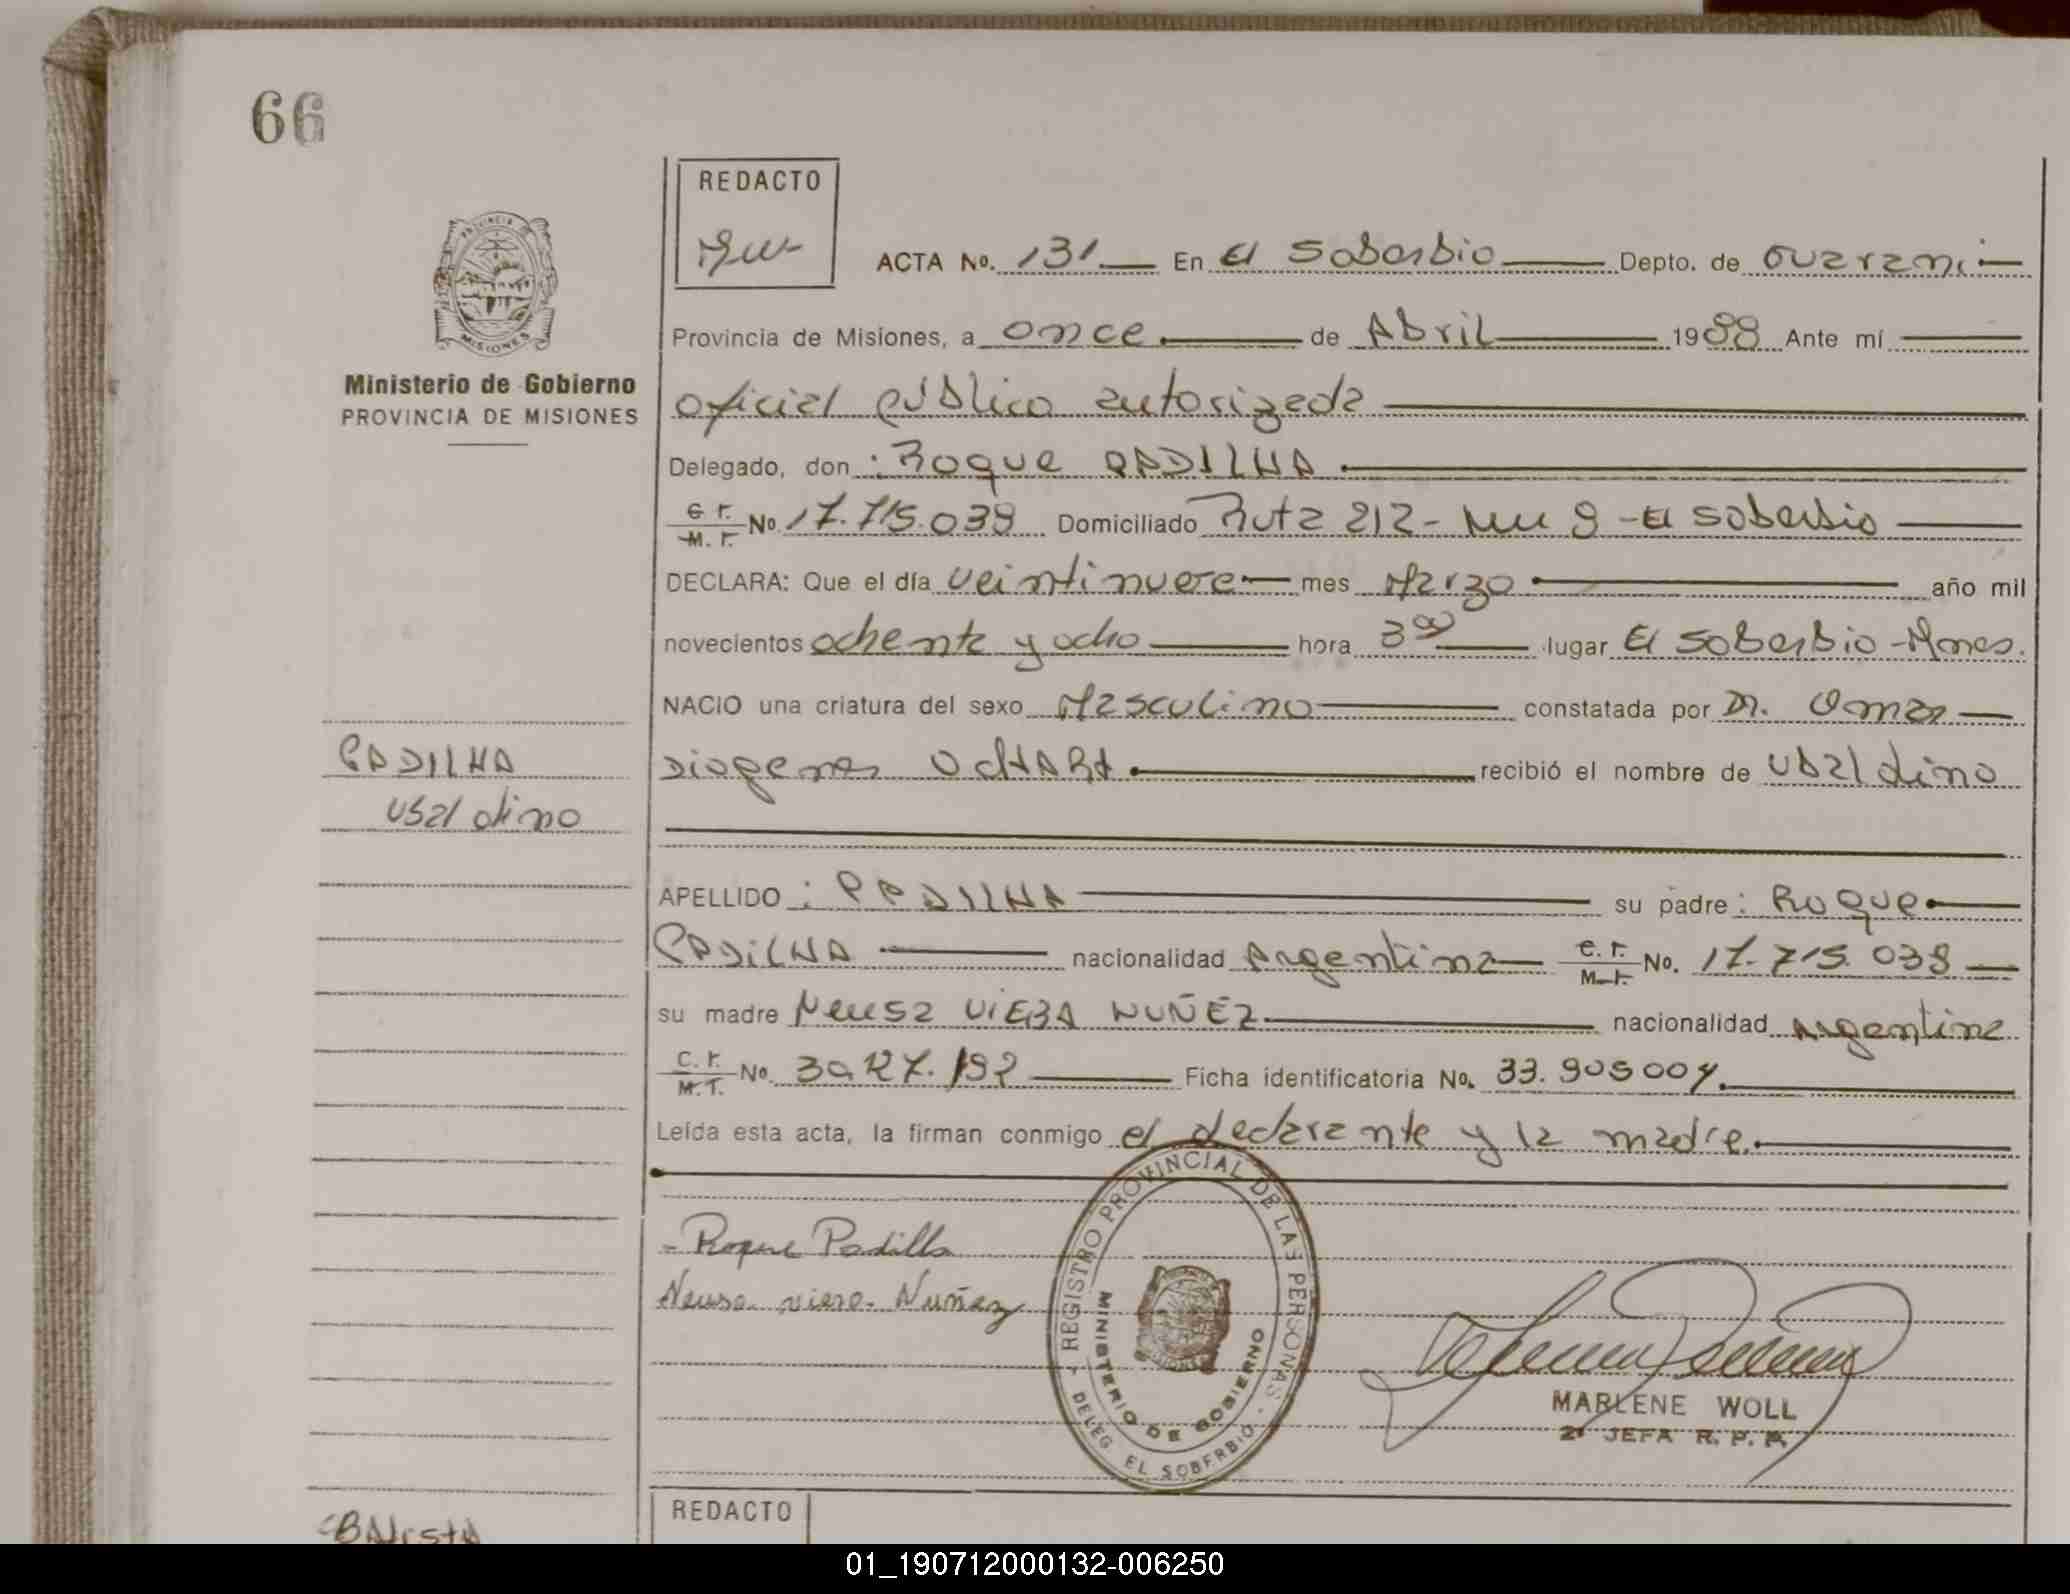 66
REDACTO
PROVINCIA
MISIONES
Ministerio de Gobierno
PROVINCIA DE MISIONES
ACTA No. 131 En El Soberbio Depto. de Guarani
Provincia de Misiones, a once de Abril 1988 Ante mí
oficial público autorizada
Delegado, don : Roque PADILHA
C. I.
M. I. No. 17.715.039 Domiciliado Ruta 212 - 9 - El Soberbio
DECLARA: Que el día veintinueve mes Marzo año mil
novecientos ochenta y ocho hora 3 00 lugar El Soberbio - Mnes.
NACIO una criatura del sexo Masculino constatada por Dr. Omar
Diogenes recibió el nombre de Ubaldino
PADILHA
Ubaldino
APELLIDO : PADILHA su padre : Roque
PADILHA nacionalidad Argentina C. I.
M. I. No. 17.715.039
su madre Neusa VIERA NUÑEZ nacionalidad Argentina
C. I.
M. I. No. 30.127.192 Ficha identificatoria No. 33.905004.
Leída esta acta, la firman conmigo el declarante y la madre.
- Roque Padilla
Neusa viera Nuñez
REGISTRO PROVINCIAL DE LAS PERSONAS
MINISTERIO DE GOBIERNO
DELEG. EL SOBERBIO
MARLENE WOLL
2ª JEFA R. P. P.
REDACTO
Batista
01_190712000132-006250